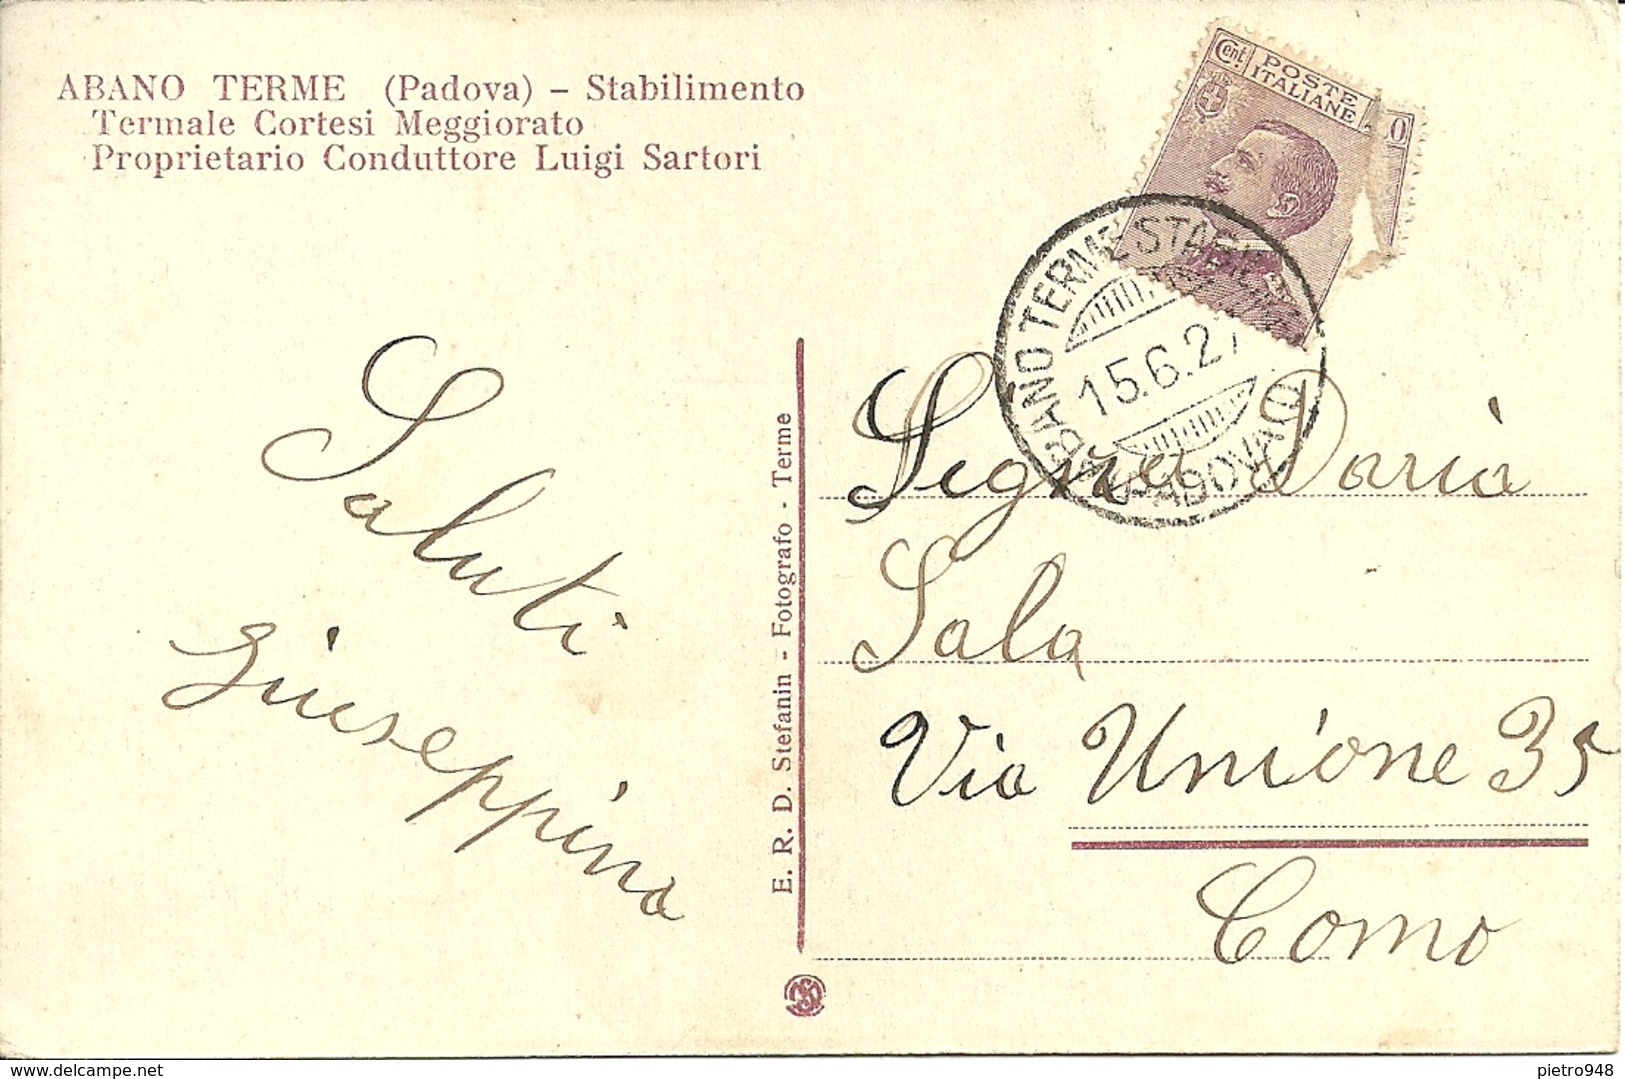 ABANO TERME (Padova) – Stabilimento
Termale Cortesi Meggiorato
Proprietario Conduttore Luigi Sartori
Cent.
POSTE
ITALIANE
0
ABANO TERME STABILIM
15.6.27
PADOVA
Saluti
Giuseppina
E. R. D. Stefanin - Fotografo - Terme
Sig.na Daria
Sala
Via Unione 35
Como
pietro948
delcampe.net